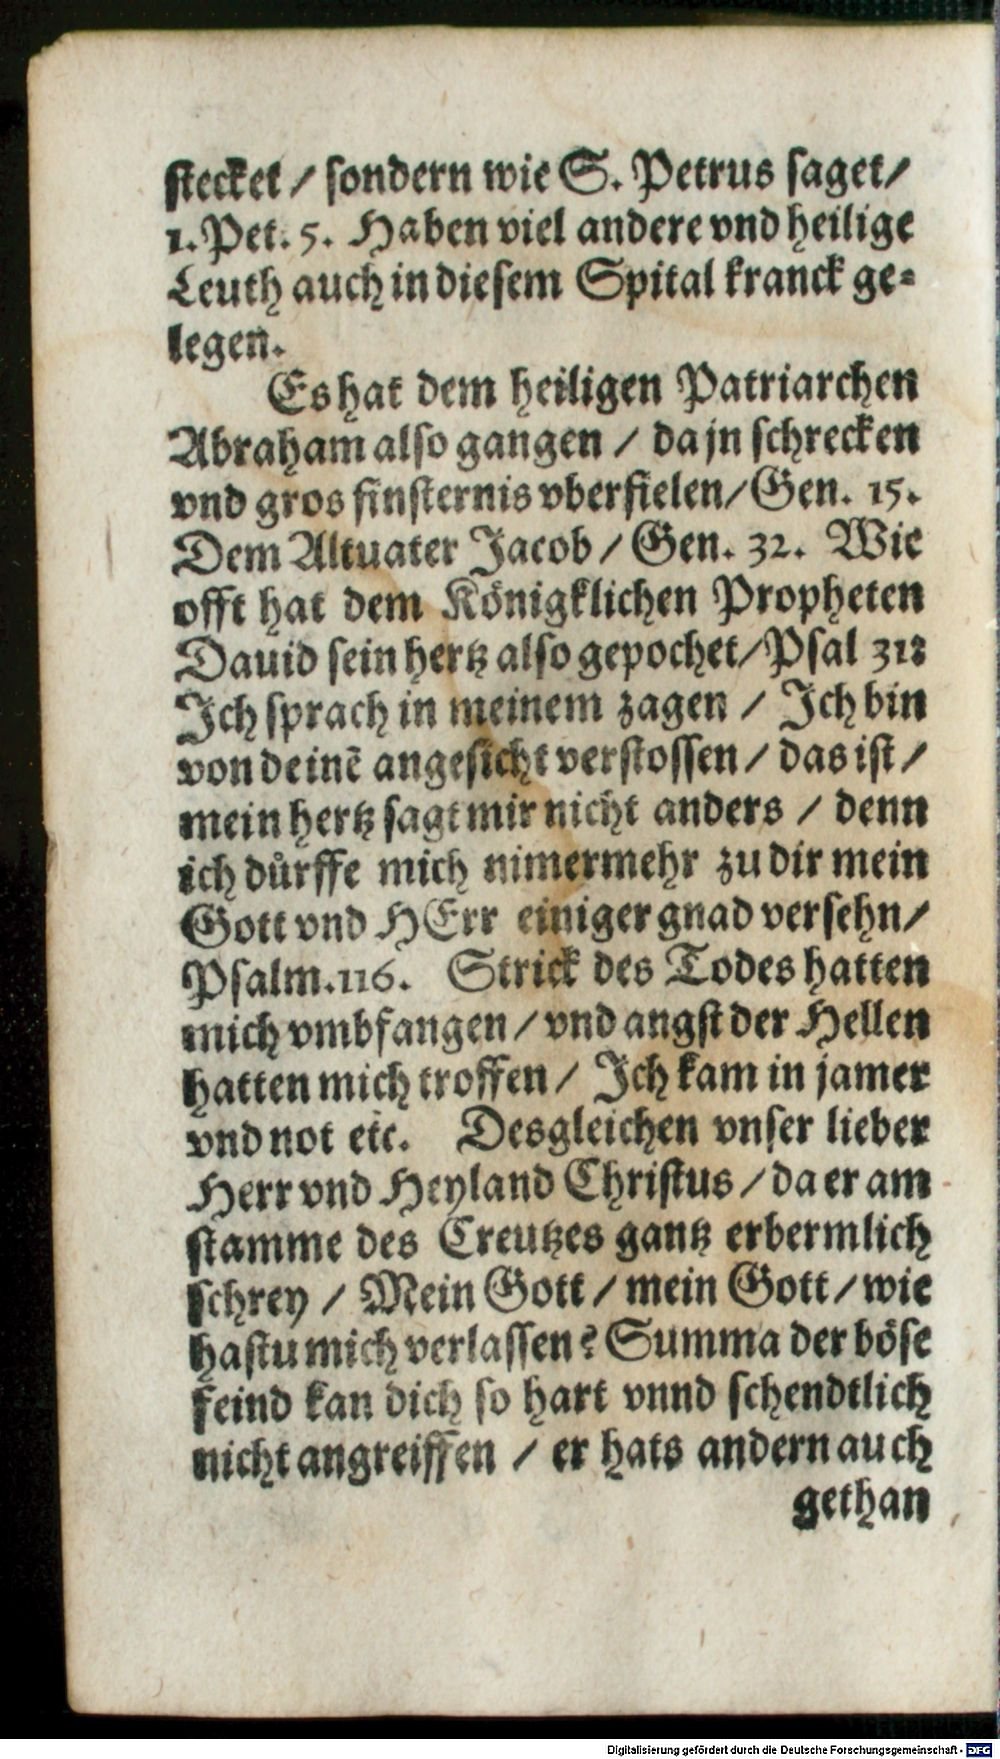 stecket / sondern wie S. Petrus saget/
1. Pet. 5. Haben viel andere vnd heilige
Leuth auch in diesem Spital kranck ge-
legen.
Es hat dem heiligen Patriarchen
Abraham also gangen / da jn schrecken
vnd gros finsternis vberfielen/Gen. 15.
Dem Altuater Jacob / Gen. 32. Wie
offt hat dem Königklichen Propheten
Dauid sein hertz also gepochet/Psal 31:
Ich sprach in meinem zagen / Ich bin
von deinē angesicht verstossen / das ist /
mein hertz sagt mir nicht anders / denn
ich duͤrffe mich nimermehr zu dir mein
Gott vnd HErr einiger gnad versehn/
Psalm.116. Strick des Todes hatten
mich vmbfangen / vnd angst der Hellen
hatten mich troffen / Ich kam in jamer
vnd not etc. Desgleichen vnser lieber
Herr vnd Heyland Christus / da er am
stamme des Creutzes gantz erbermlich
schrey / Mein Gott / mein Gott / wie
hastu mich verlassen? Summa der böse
feind kan dich so hart vnnd schendtlich
nicht angreiffen / er hats andern auch
gethan
Digitalisierung gefördert durch die Deutsche Forschungsgemeinschaft - DFG